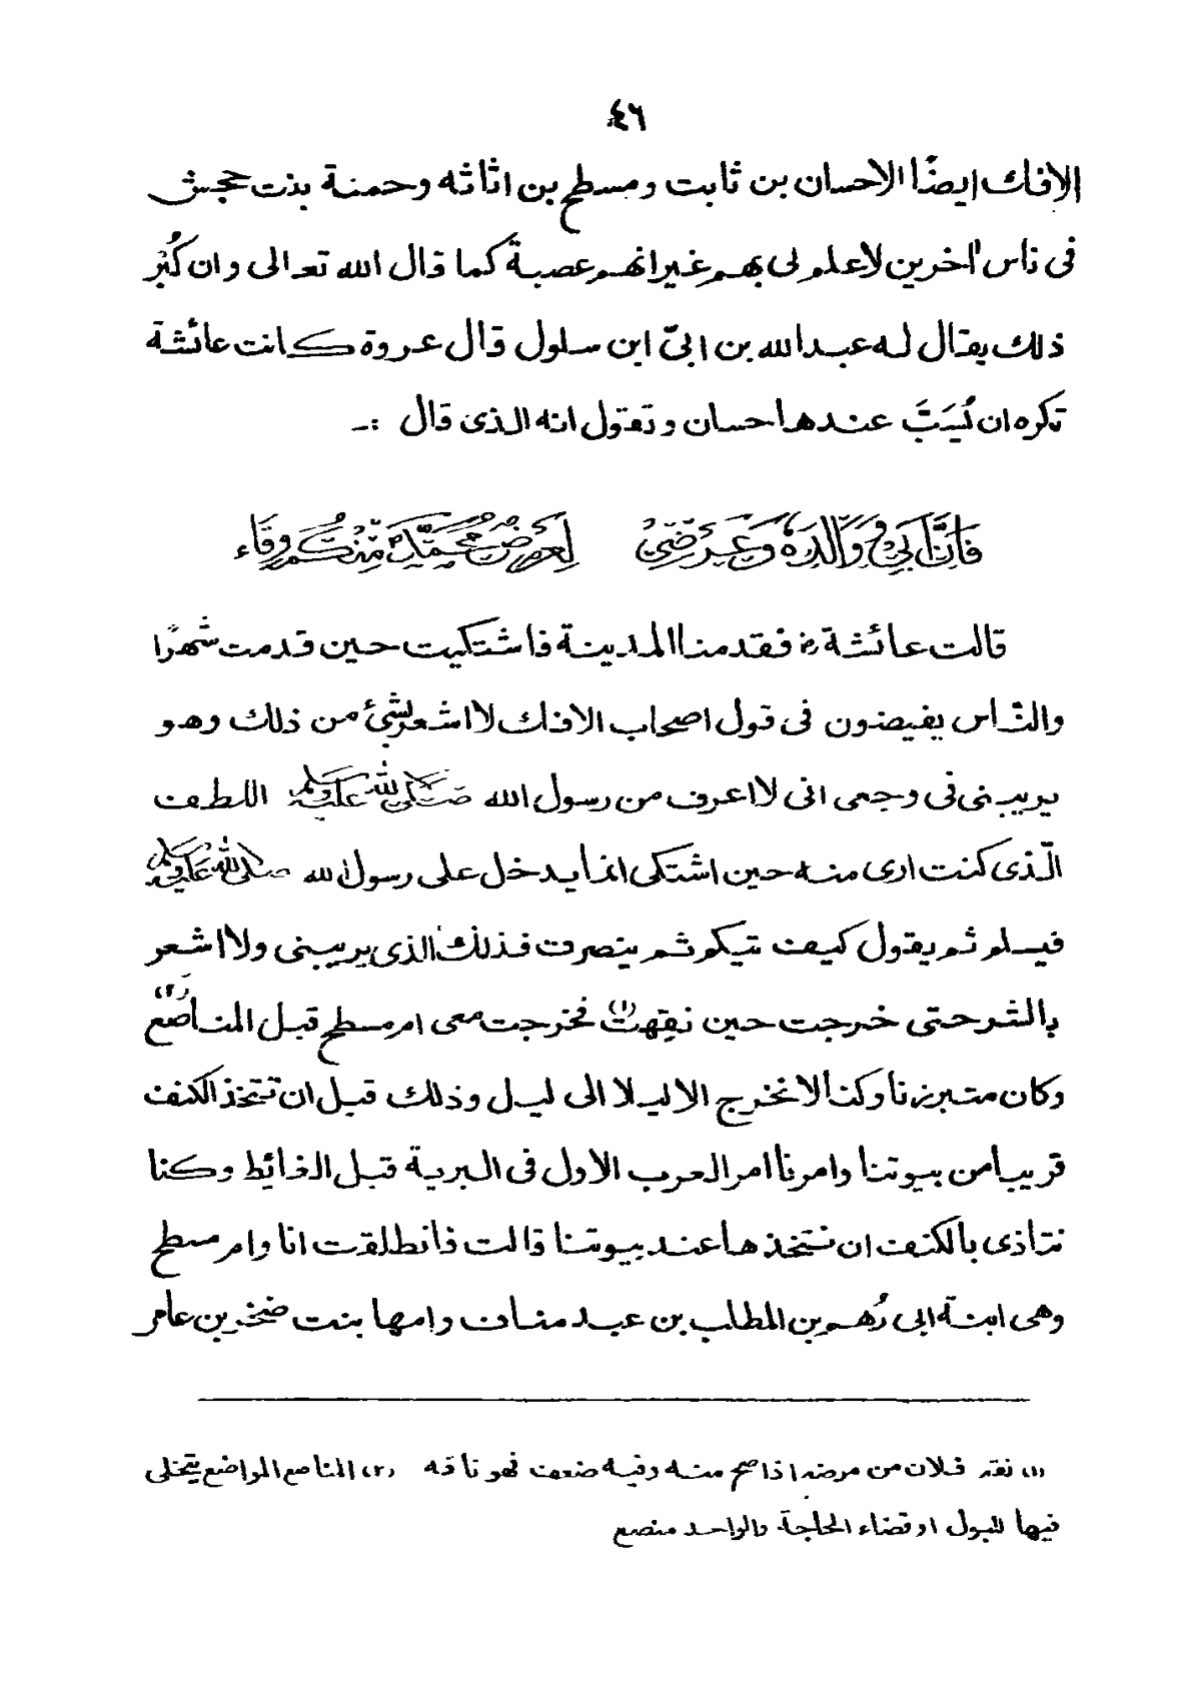 ٤٦
الافك ايضًا الاحسان بن ثابت ومسطح بن اثاثه وحمنة بنت حجش
فى ناس اٰخرين لاعلم لى بهم غير انهم عصبةٌ كما قال الله تعالى وان كُبْر
ذلك يقال له عبد الله بن ابىّ ابن سلول قال عروة كانت عائشة
تكره ان يُسَبَّ عندها حسان وتقول انه الذى قال :ـ
فَاِنَّ اَبِىْ وَوَالِدَهٗ وَعِرْضِىْ لِعِرْضِ مُحَمَّدٍ مِّنْكُمْ وِقَاء
قالت عائشةؓ فقدمنا المدينة فاشتكيت حين قدمت شهرًا
والنّاس يفيضون فى قول اصحاب الافك لا اشعر بشئ من ذلك وهو
يريبنى فى وجعى انى لا اعرف من رسول الله صَلَّى اللهُ عَلَيْهِ وَسَلَّم اللطف
الّذى كنت ارى منه حين اشتكى انما يدخل على رسول الله صلى الله عليه وسلم
فيسلم ثم يقول كيف تيكم ثم ينصرف فذلك الذى يريبنى ولا اشعر
بالشر حتى خرجت حين نقِهت(١) فخرجت معى ام مسطح قبل المناصع(٢)
وكان متبرزنا وكنا لا نخرج الا ليلا الى ليل وذلك قبل ان تتخذ الكنف
قريبا من بيوتنا وامرنا امر العرب الاول فى البرية قبل الغائط وكنا
نتاذى بالكنف ان نتخذها عند بيوتنا قالت فانطلقت انا وام مسطح
وهى ابنة ابى رُهم بن المطلب بن عبد مناف وامها بنت ضخر بن عامر
(١) نقه فلان من مرضه اذا صح منه وفيه ضعف فهو ناقه (٢) المناصع المواضع يتخلى
فيها لبول او قضاء الحاجة والواحد منصع